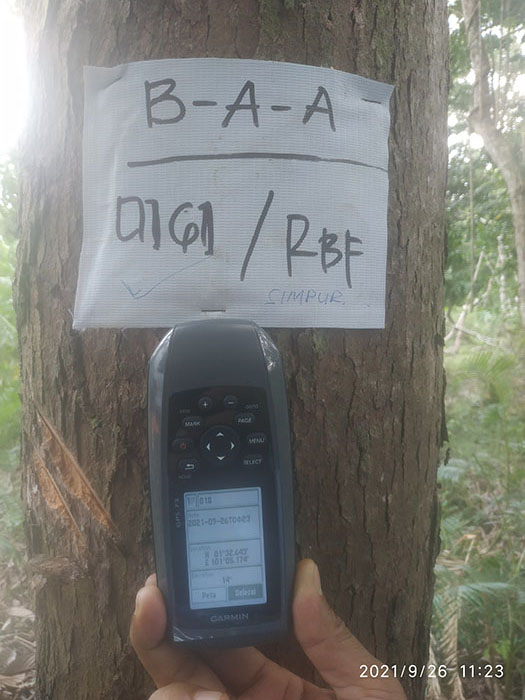 B-A-A
0161 / RBF
SIMPUR
MARK
PAGE
MENU
SELECT
2021-09-26T04:23
N 01°32.643'
E 101°05.174'
Peta
GARMIN
2021/9/26 11:23